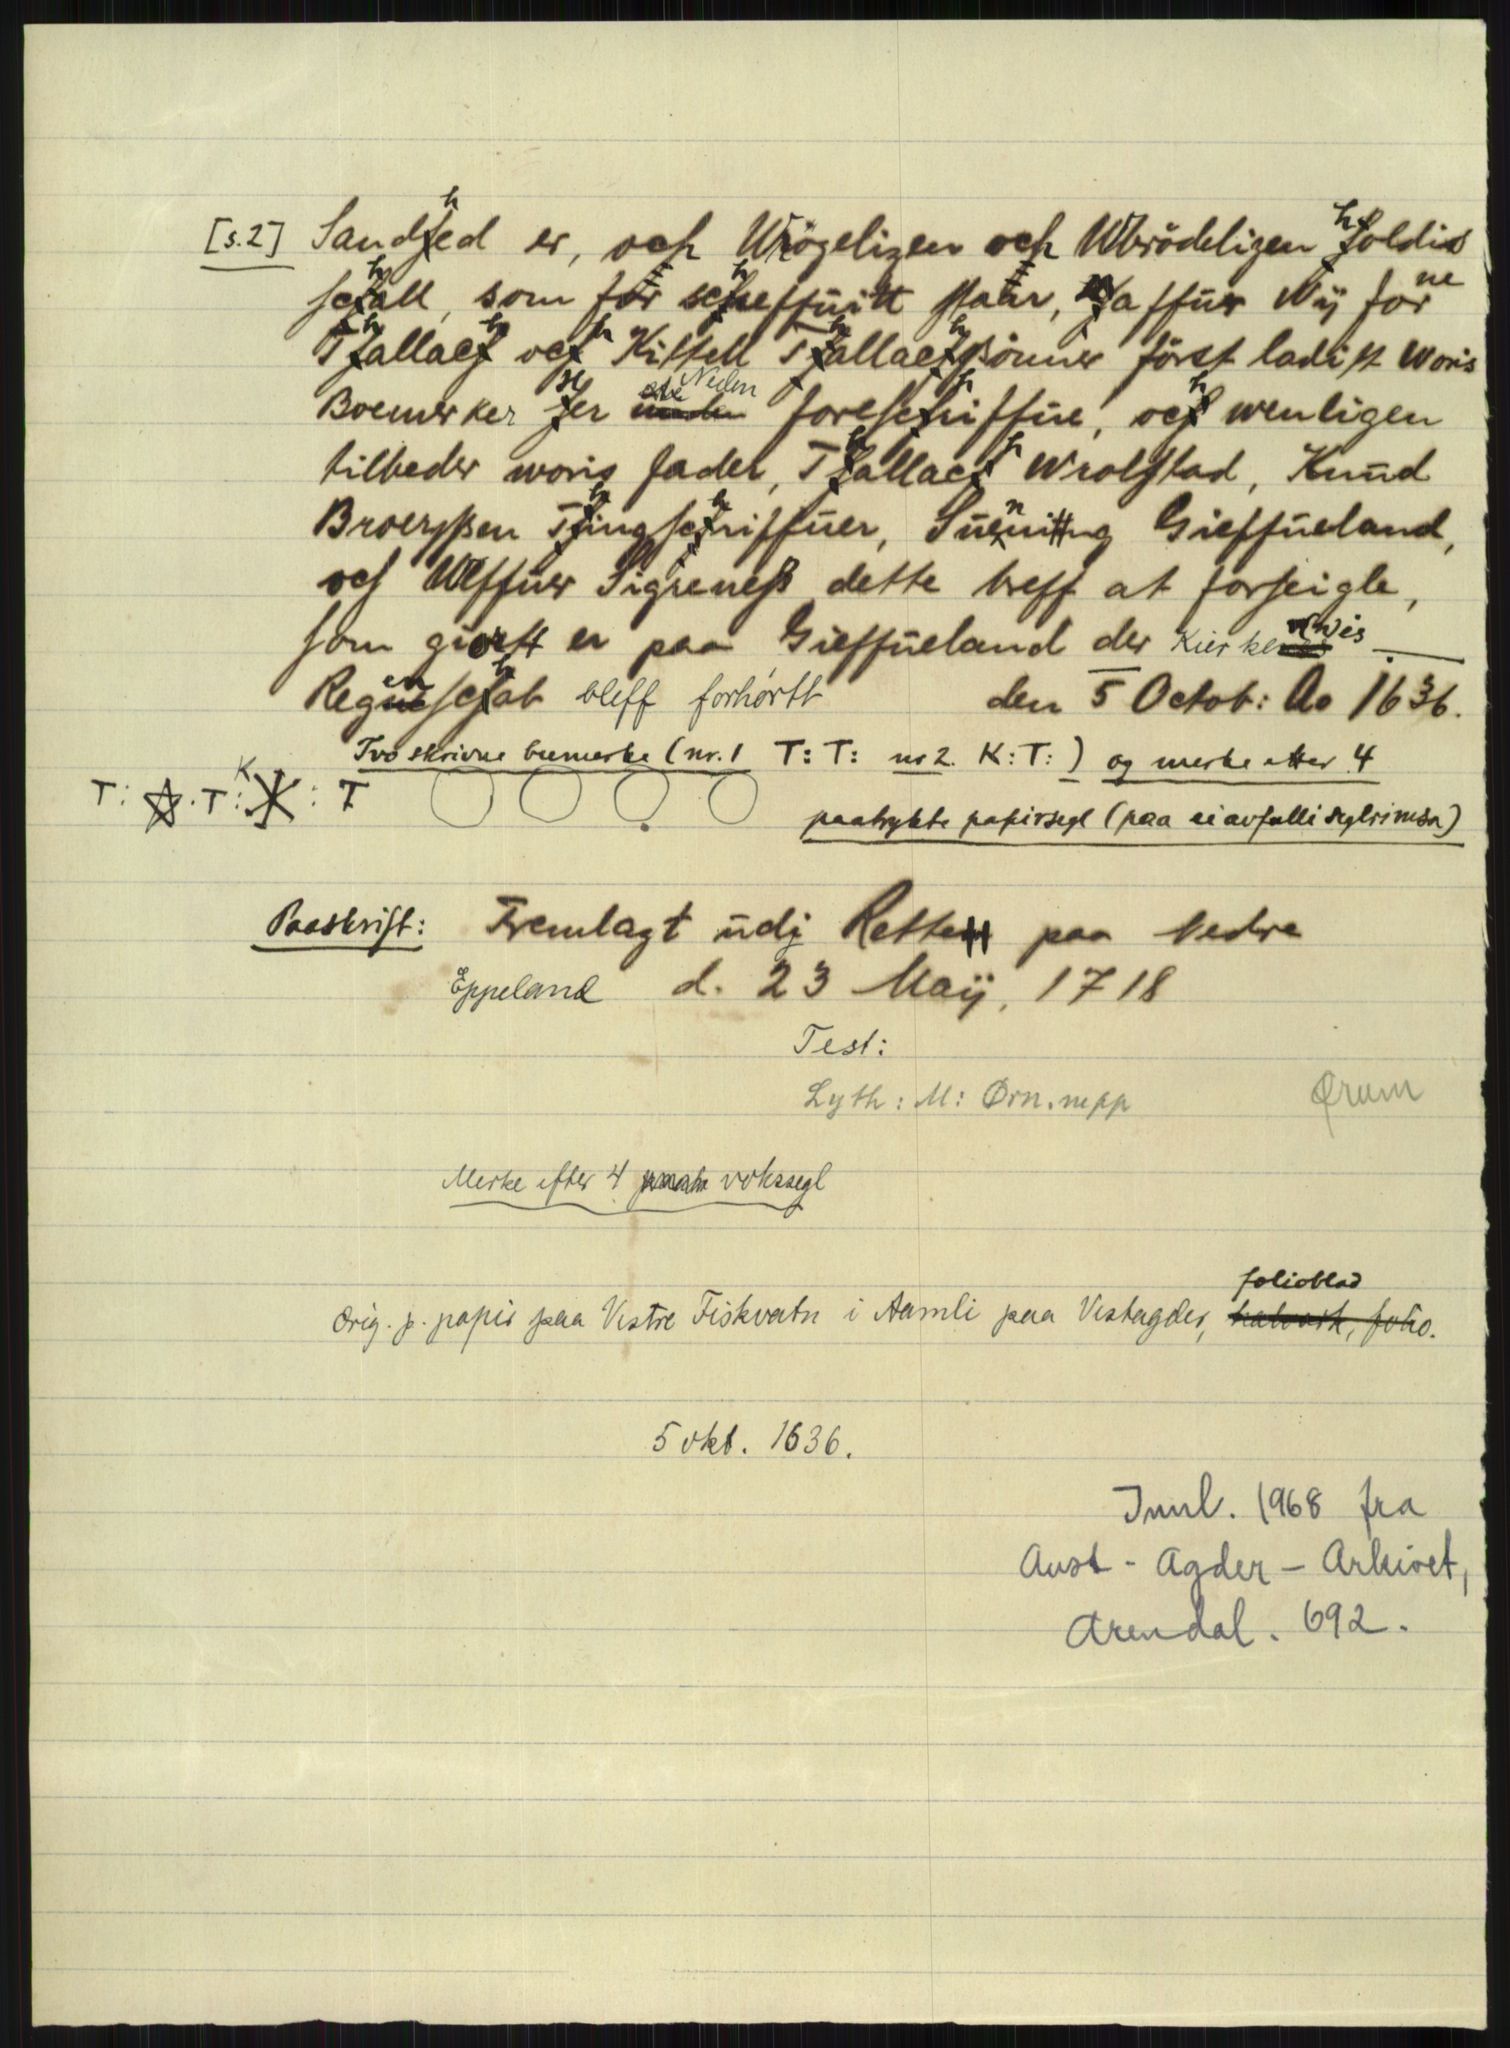 [s.2] Sandhed er, och Wrögeligen och Wbrödeligen holdis
schall, som for scheffuitt staar, haffuer Wij forne
Thallach och Kittell Thallachsönner först ladist woris
Boemerker her Neden foreschriffue, och wenligen
tilbeder woris fader, Thallach Wrolstad, Knud
Broerssen Thingschriffuer, Suenning Gieffueland,
och Wlffuer Sigreness dette breff at forseigle,
som giortt er paa Gieffueland der Kierkewis
Regenschab bleff forhørtt den 5 Octob: Ao 1636.
Tvo skrivne bumerke (nr. 1 T: T: nr 2. K: T: ) og merke etter 4
T: T: K : T
paatrykte papirsegl (paa ei avfalli seglrimsa)
Paaskrift: Fremlagt udj Retten paa Nedre
Eppeland d. 23 Maij, 1718
Test:
Lyth: M: Ørn. mpp Ørum
Merke efter 4 vokssegl
Orig. p. papir paa Vestre Fiskvatn i Aamli paa Vestagder, folioblad
5 okt. 1636.
Innl. 1968 fra
Aust-Agder-Arkivet,
Arendal. 692.